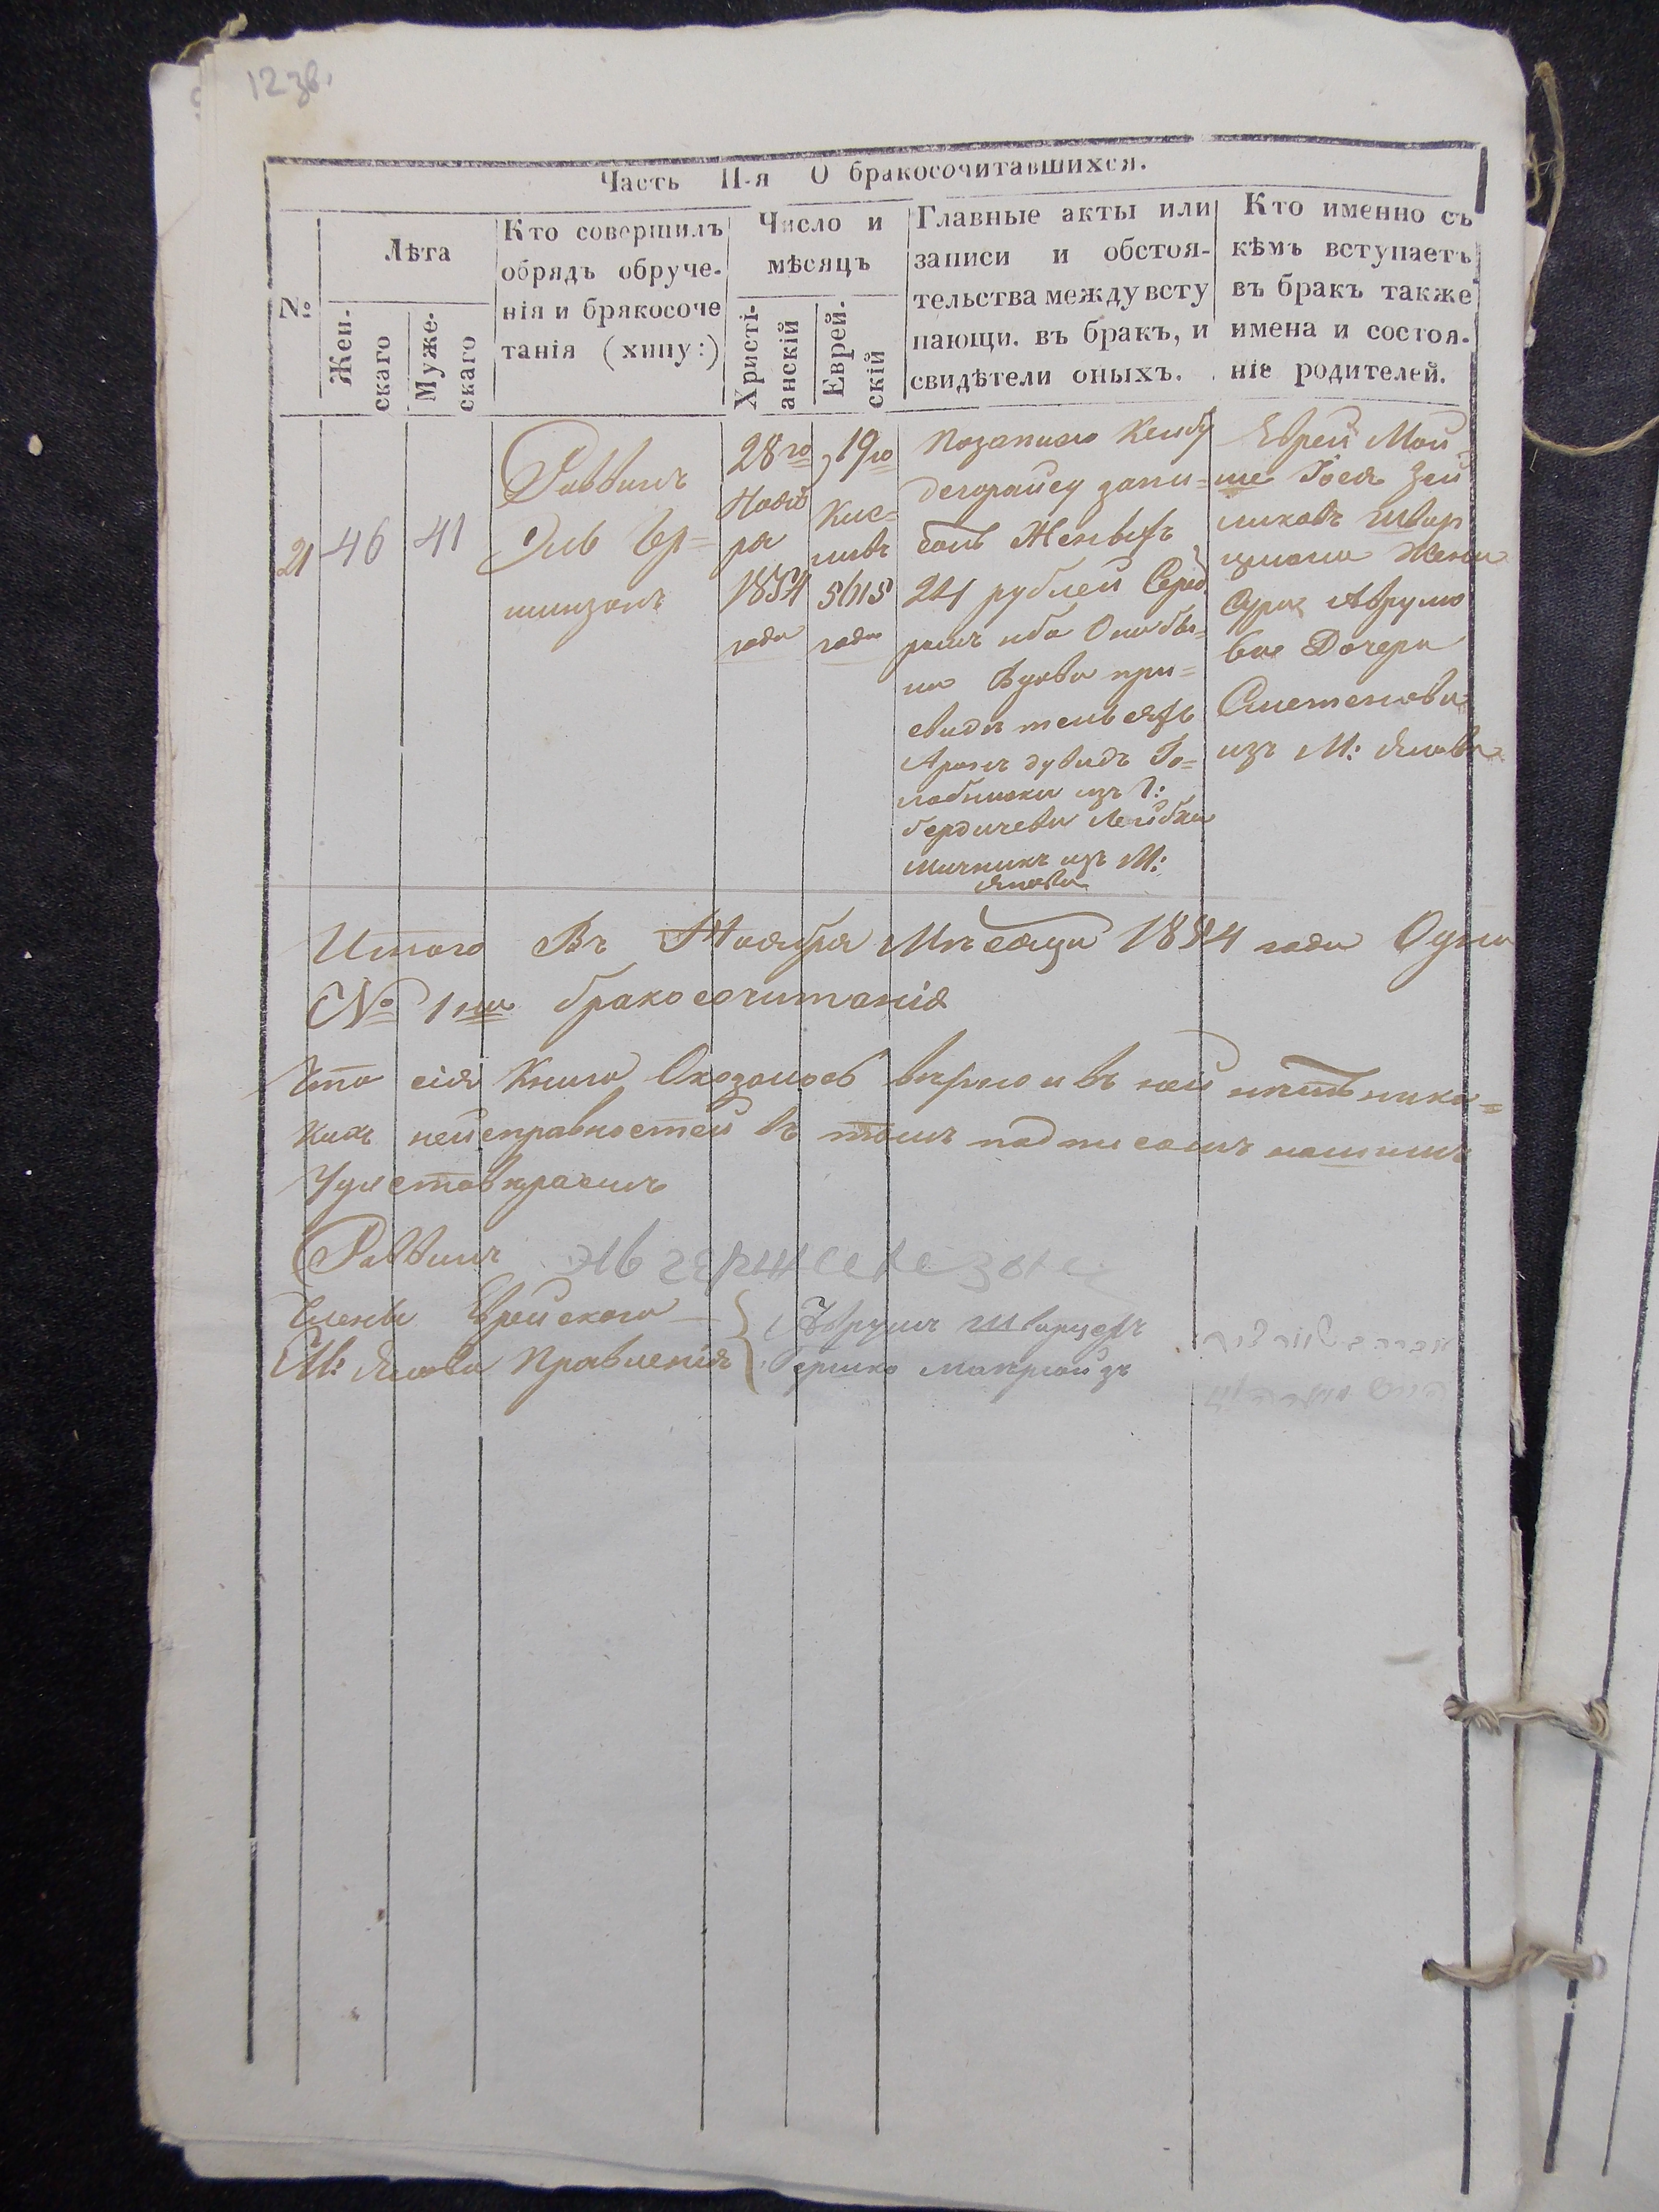 12 зв.
Часть II-я О бракосочитавшихся.
№
Лѣта
Жен-
скаго
Муже-
скаго
Кто совершилъ
обрядъ обруче-
нія и брякосоче
танія (хипу:)
Число и
мѣсяцъ
Христі-
анскій
Еврей-
скій
Главные акты или
записи и обстоя-
тельства между всту
пающи. въ бракъ, и
свидѣтели оныхъ.
Кто именно съ
кѣмъ вступаетъ
въ бракъ также
имена и состоя-
ніе родителей.
21
46
41
Раввинъ
Эль
28го
Нояб
ря
1854
года
19го
Кис=
левъ
5615
года
дегорайсу запи=
24 рублей Сереб
ромъ ибо Она бы=
ла Вдова при=
свидѣтельяхъ
Аронъ Дувидъ Го=
изъ Г:
бердичева Лейбка
изъ М:
Янова
Еврей Мой
ше Іося Зей
ликовъ Швар
цмана Жена
Сура Аврумо
ва Дочера
Сметенова
изъ М: Янова
Итого Въ Ноября Мѣсяца 1854 года Одна
№ 1на бракосочитанія
Что сія Книга Оказалось вѣрно и въ ней нѣтъ ника=
кихъ неисправностей въ томъ подписомъ нашимъ
Удостовѣраемъ
Раввинъ
Члены Еврейского
М: Янова Правленія
Аврумъ Шварцеръ
Гершко